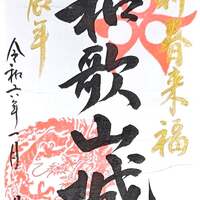 新春来福
和歌山城
辰年
令和六年一月